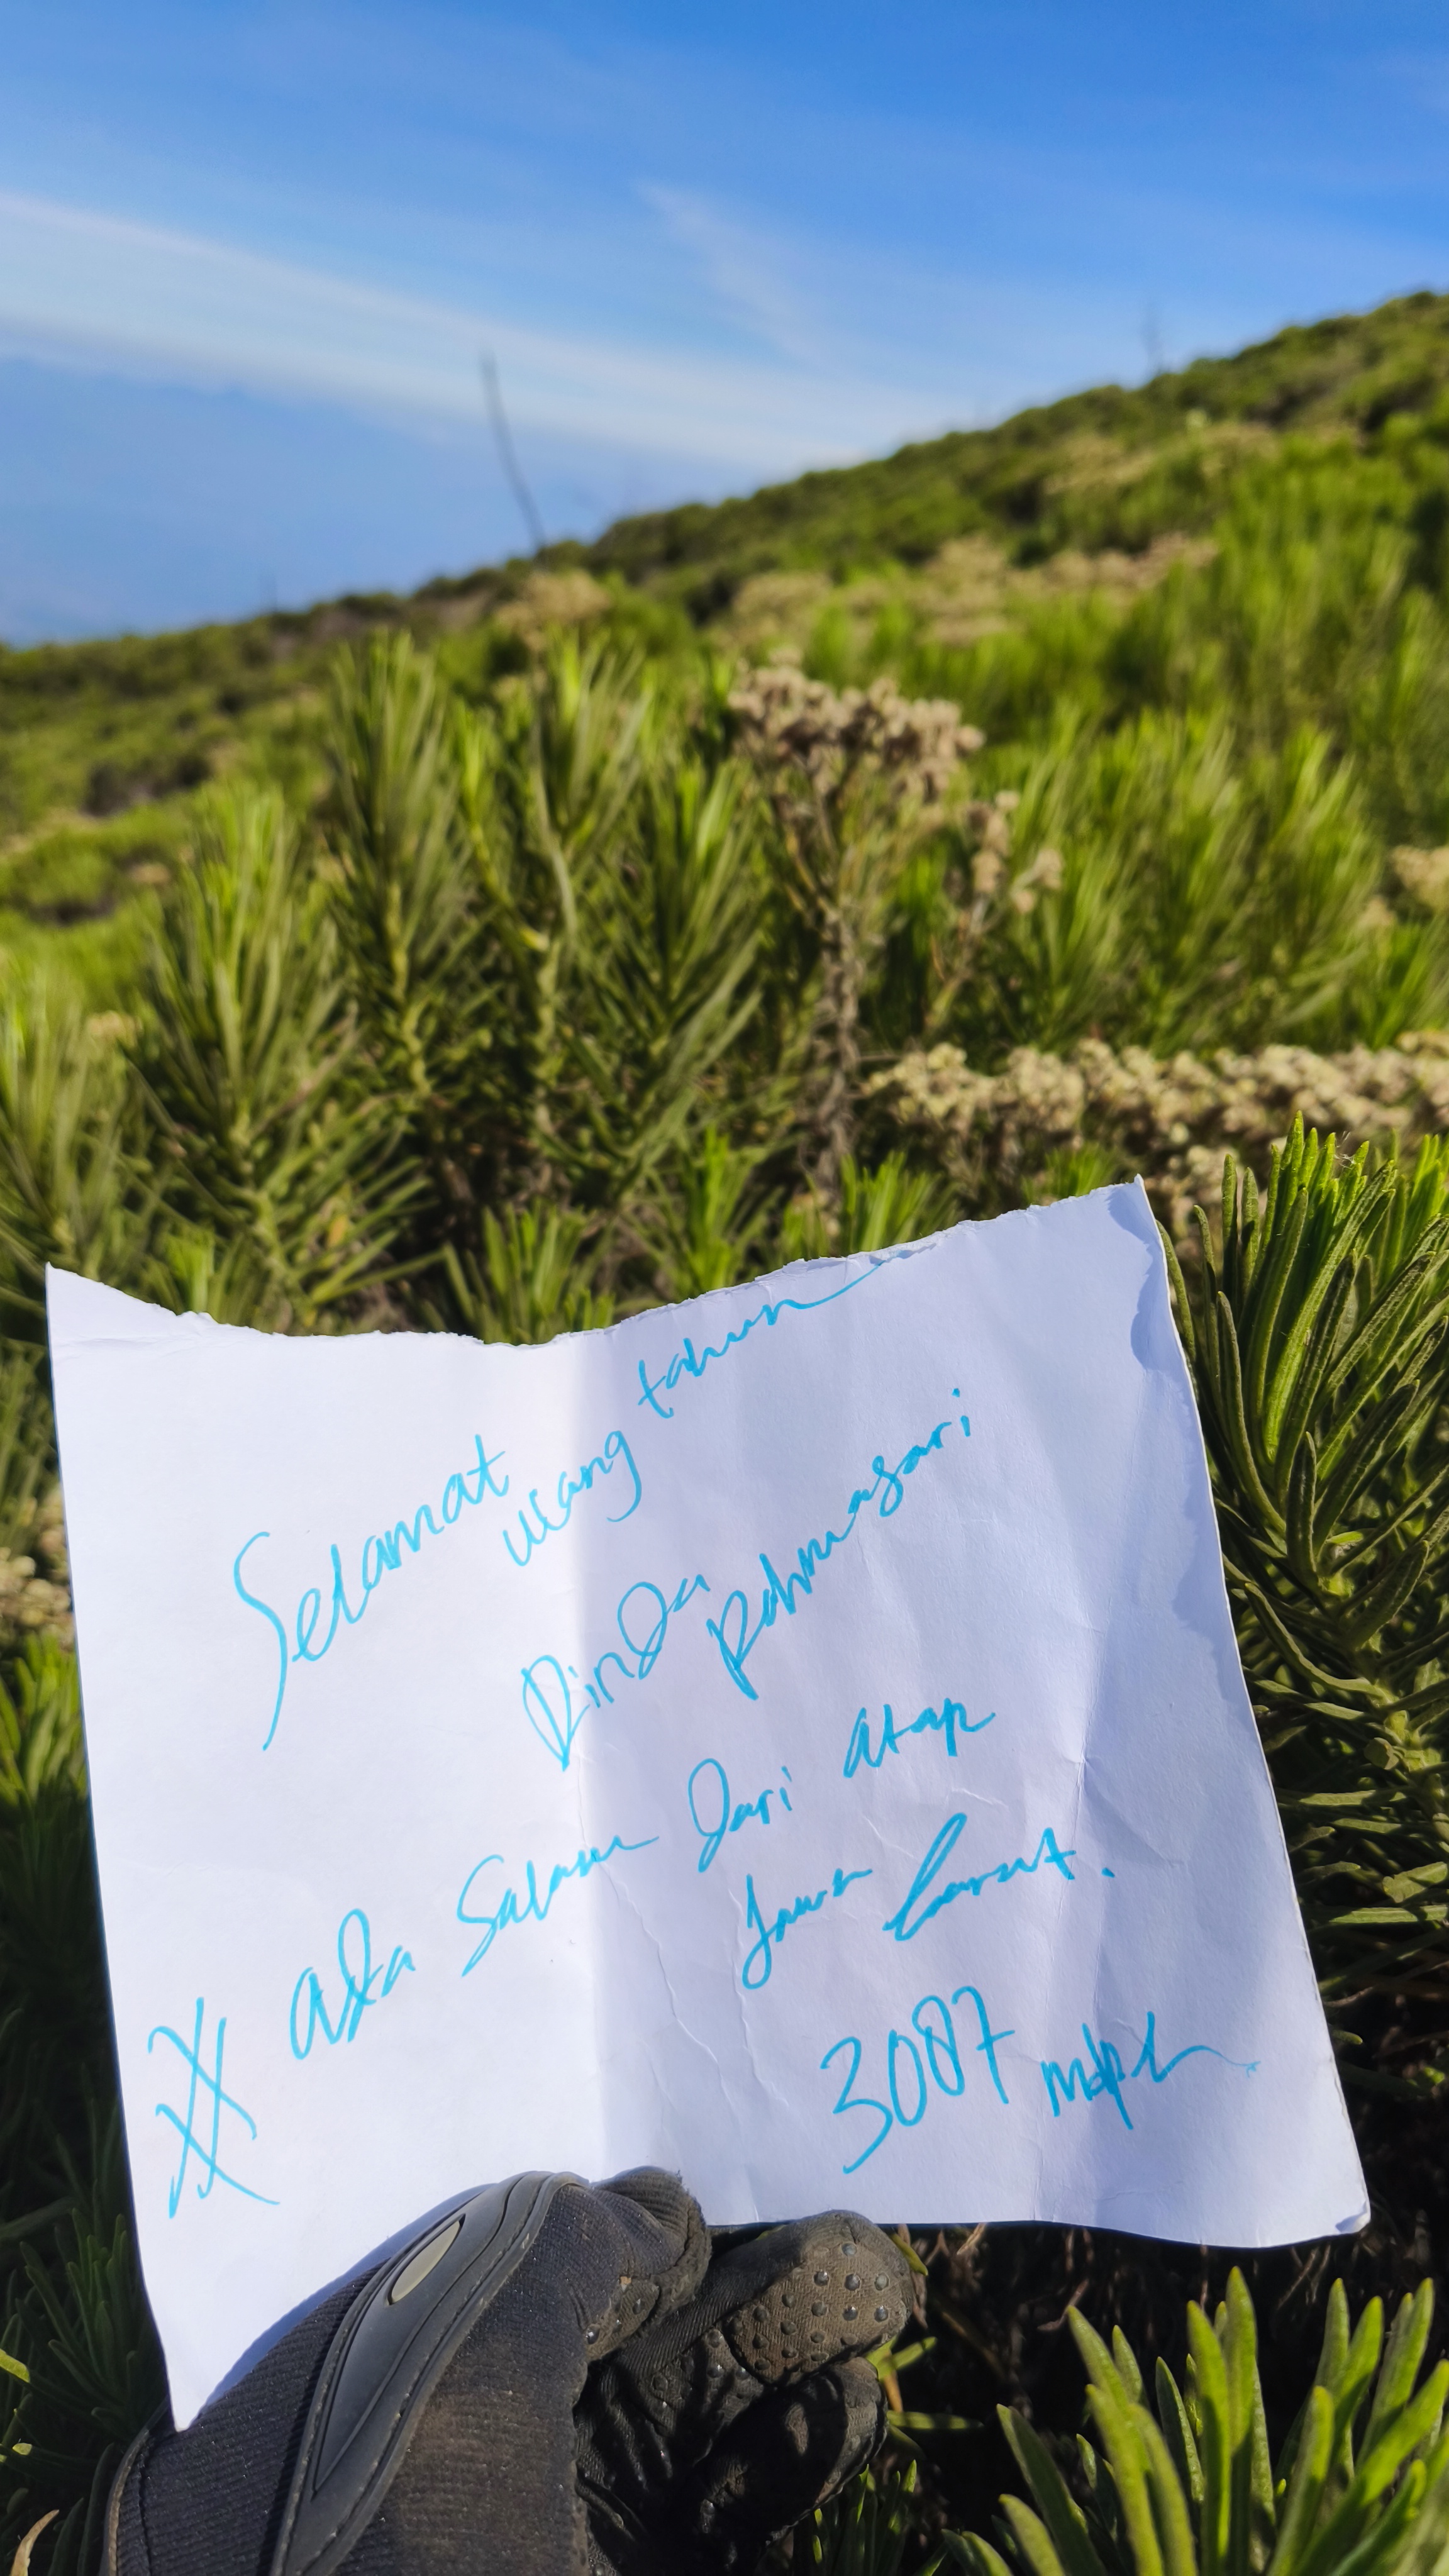 Selamat
ulang tahun
Dinda
Rahmasari
Ada Salam dari atap
Jawa Barat.
3087 mdpl